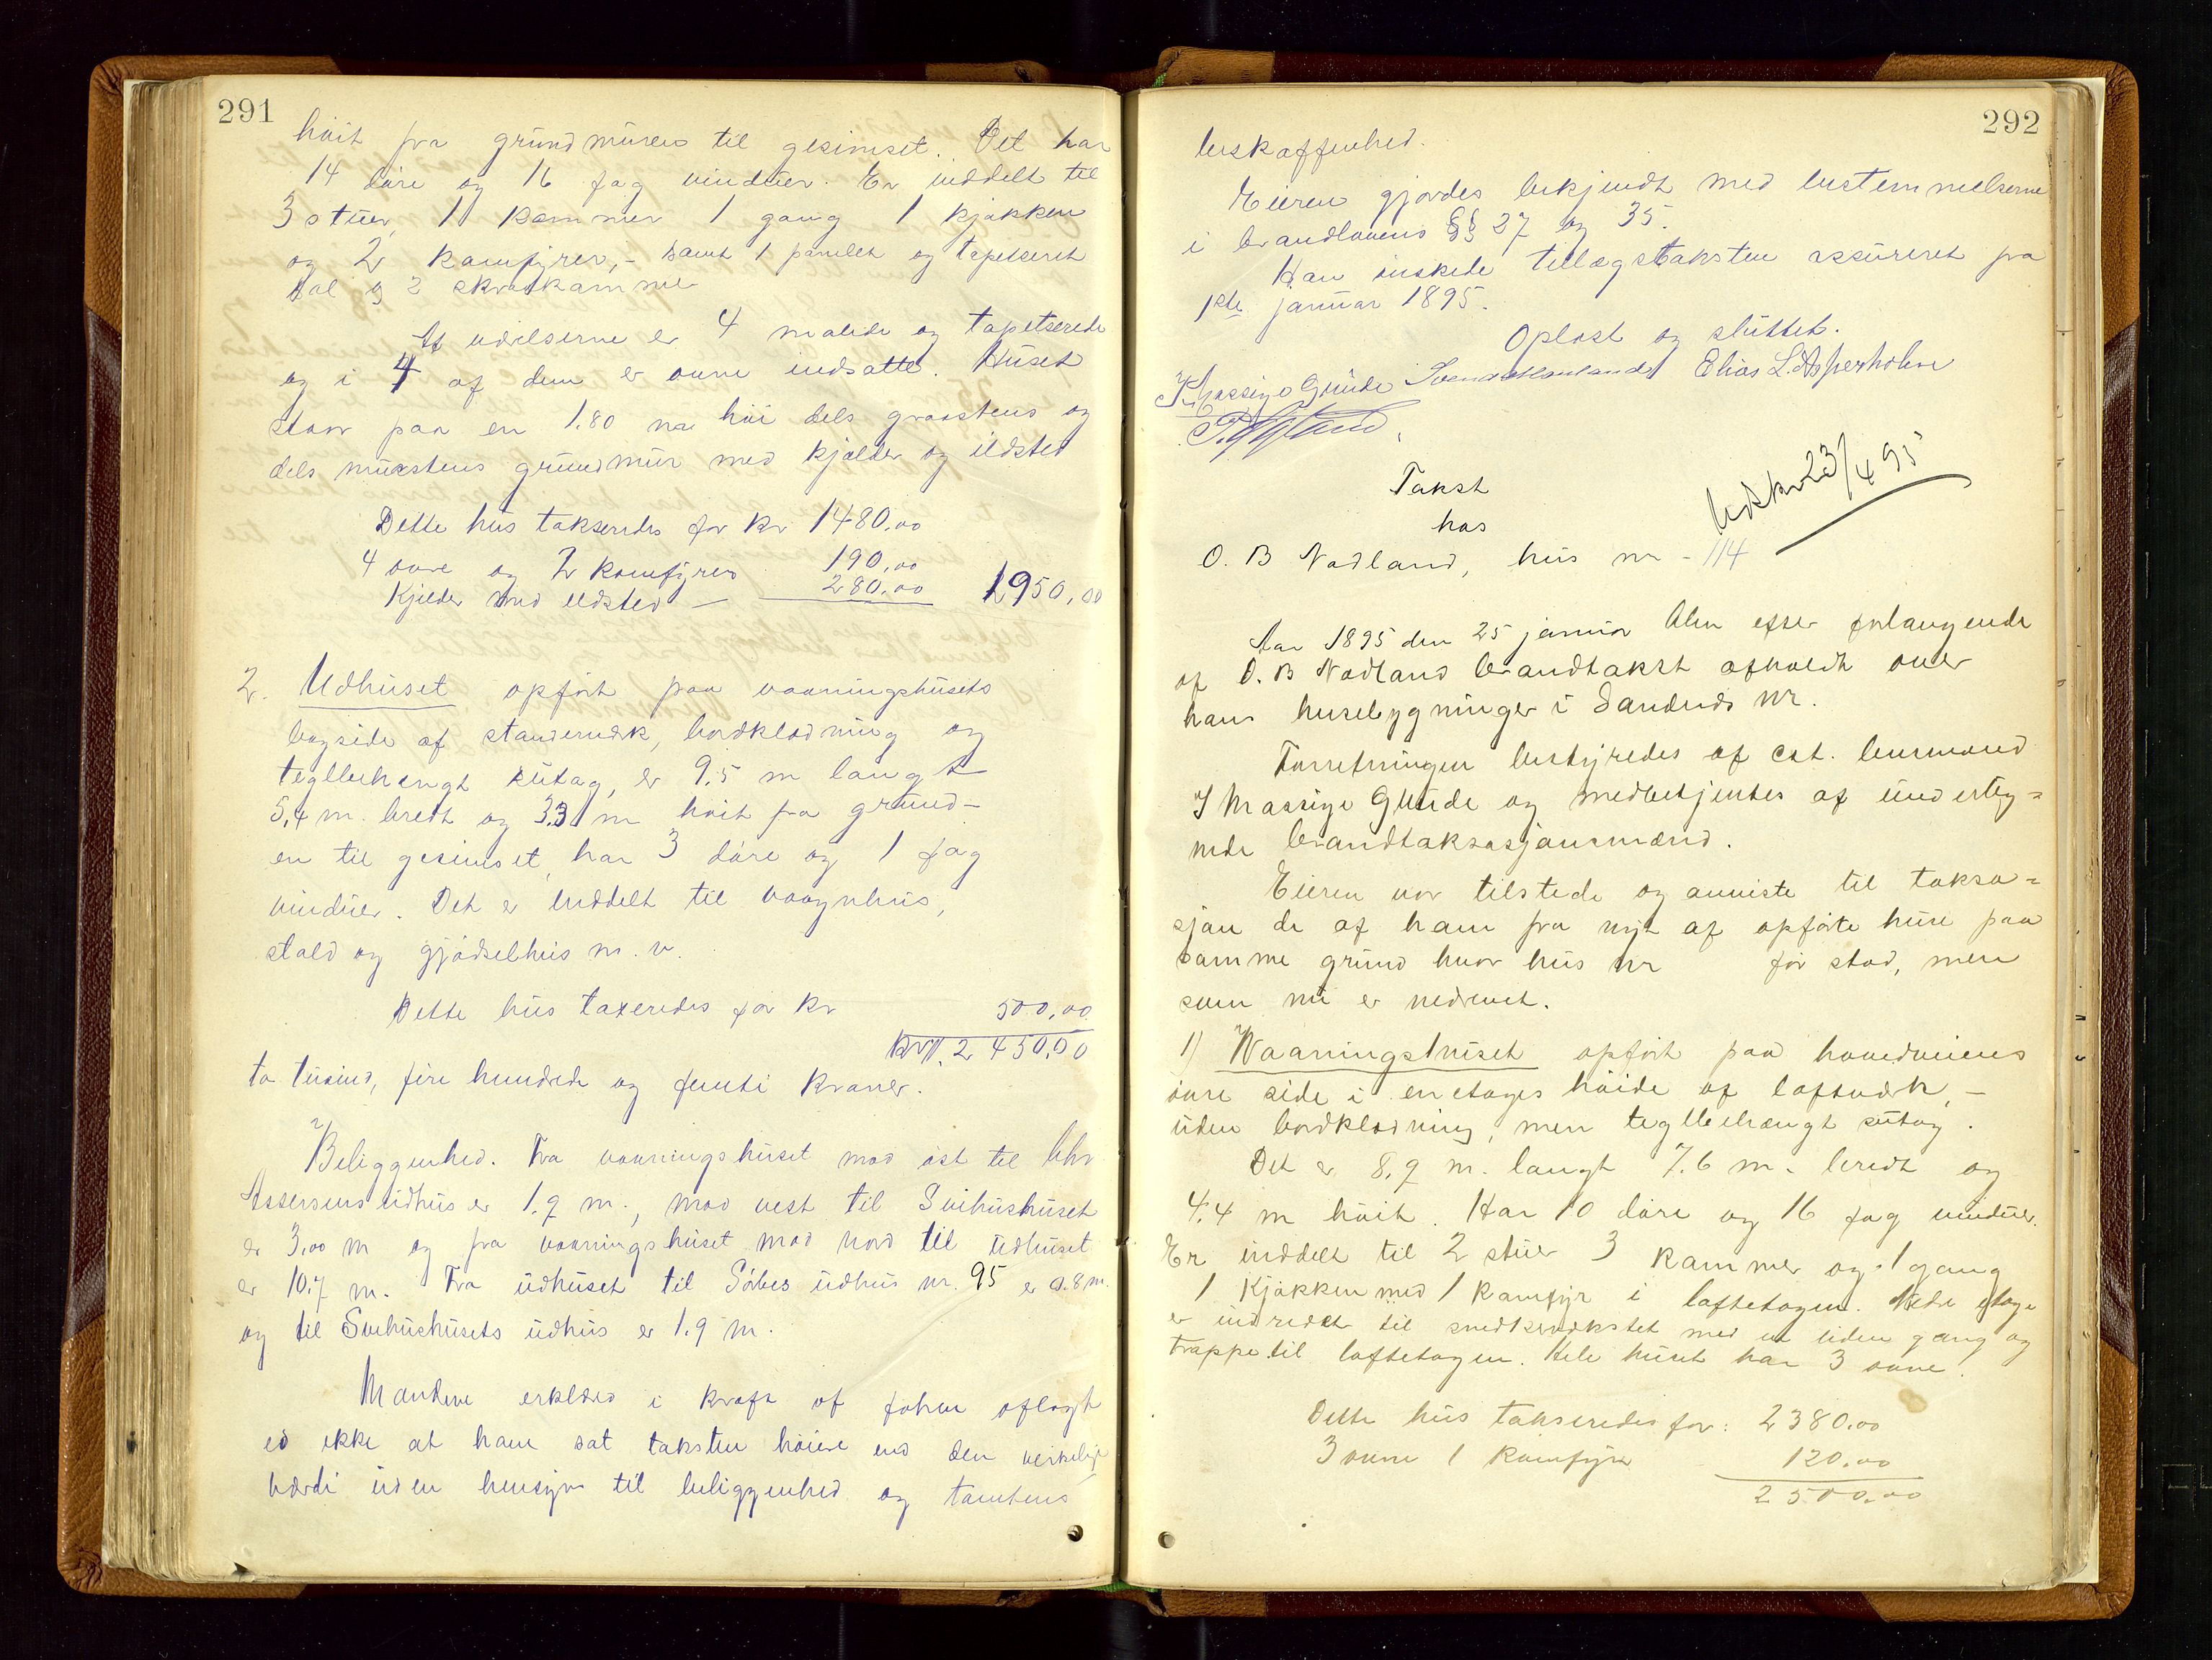 291
høit fra grundmuren til gesimset. Det har
14 døre og 16 fag vinduer. Er inddelt til
3 stuer, 11 kammer 1 gang 1 kjøkken
og 2 komfyrer, - samt 1 panelet og tapetseret
sal og 2 skraakammer
Af værelserne er 4 malede og tapetserede
og i 4 af dem er ovne indsatte. Huset
staar paa en 1.80 m høi dels graastens og
dels murstens grundmur med kjælder og ildsted
Dette hus takseredes for kr 1480.00
4 ovne og 2 komfyrer 190,00
Kjelder med ildsted — 280.00 1950,00
2. Udhuset opført paa vaaningshusets
bagside af stavverværk, bordklædning og
teglbehængt sutag, er 9.5 m langt
5,4 m. bredt og 3.31 m høit fra grund-
en til gesimset, har 3 døre og 1 fag
vinduer. Det er inddelt til vaagnhus,
stald og gjødselhus m. v.
Dette hus taxeredes for kr 500,00
kr 2 450,00
to tusind, fire hundrede og femti kroner.
Beliggenhed. Fra vaaningshuset mod øst til Chr
Assersens udhus er 1.9 m., mod vest til Svihushuset
er 3,00 m og fra vaaningshuset mod nord til udhuset
er 10.7 m. Fra udhuset til Sørbøs udhus nr. 95 er 0.8 m.
og til Svihushusets udhus er 1.9 m.
Mændene erklæred i kraft af forhen aflagt
ed ikke at have sat taksten høiere end den virkelige
værdi uden hensyn til beliggenhed og tomtens
292
beskaffenhed.
Eieren gjordes bekjendt med bestemmelserne
i brandlovens §§ 27 og 35.
Han ønskede tillægstaksten assureret fra
1ste januar 1895.
Oplæst og sluttet.
Massige Gunde Elias L. Asperholm
Takst
hos
Udskr 23/4 95
O. B Nodland, hus nr - 114
Aar 1895 den 25 januar blev efter forlangende
af O. B Nodland brandtakst afholdt over
hans husebygninger i Sandnes nr.
Forretningen bestyredes af cst. lensmand
T Massige Gunde og medbetjentes af underteg=
nede brandtaksasjonsmænd.
Eieren var tilstede og anviste til taksa=
sjon de af ham fra nyt af opførte huse paa
samme grund hvor hus nr før stod, men
som nu er nedrevet.
1) Vaaningshuset opført paa hovedveiens
øvre side i en etages høide af loftværk, -
uden bordklædning, men teglbehængt sutag.
Det er 8.9 m. langt 7.6 m. bredt og
4.4 m høit. Har 10 døre og 16 fag vinduer.
Er inddelt til 2 stuer 3 kammer og 1 gang
1 kjøkken med 1 komfyr i loftetagen. Nedre etage
er indredet til snedkerværksted med en liden gang og
trappe til loftetagen. Hele huset har 3 ovne.
Dette hus takseredes for: 2380.00
3 ovne 1 komfyr 120.00
2500.00